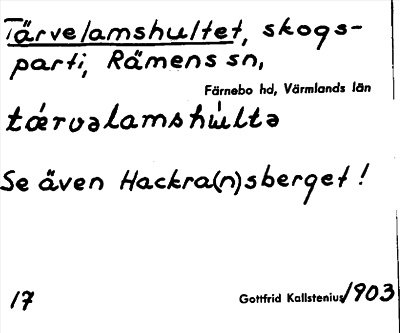 Tärvelamshultet, skogs-
parti, Rämens sn,
Färnebo hd, Värmlands län
tǽrvəlamshu̇́ltə
Se även Hackra(n)sberget!
17 Gottfrid Kallstenius 1903